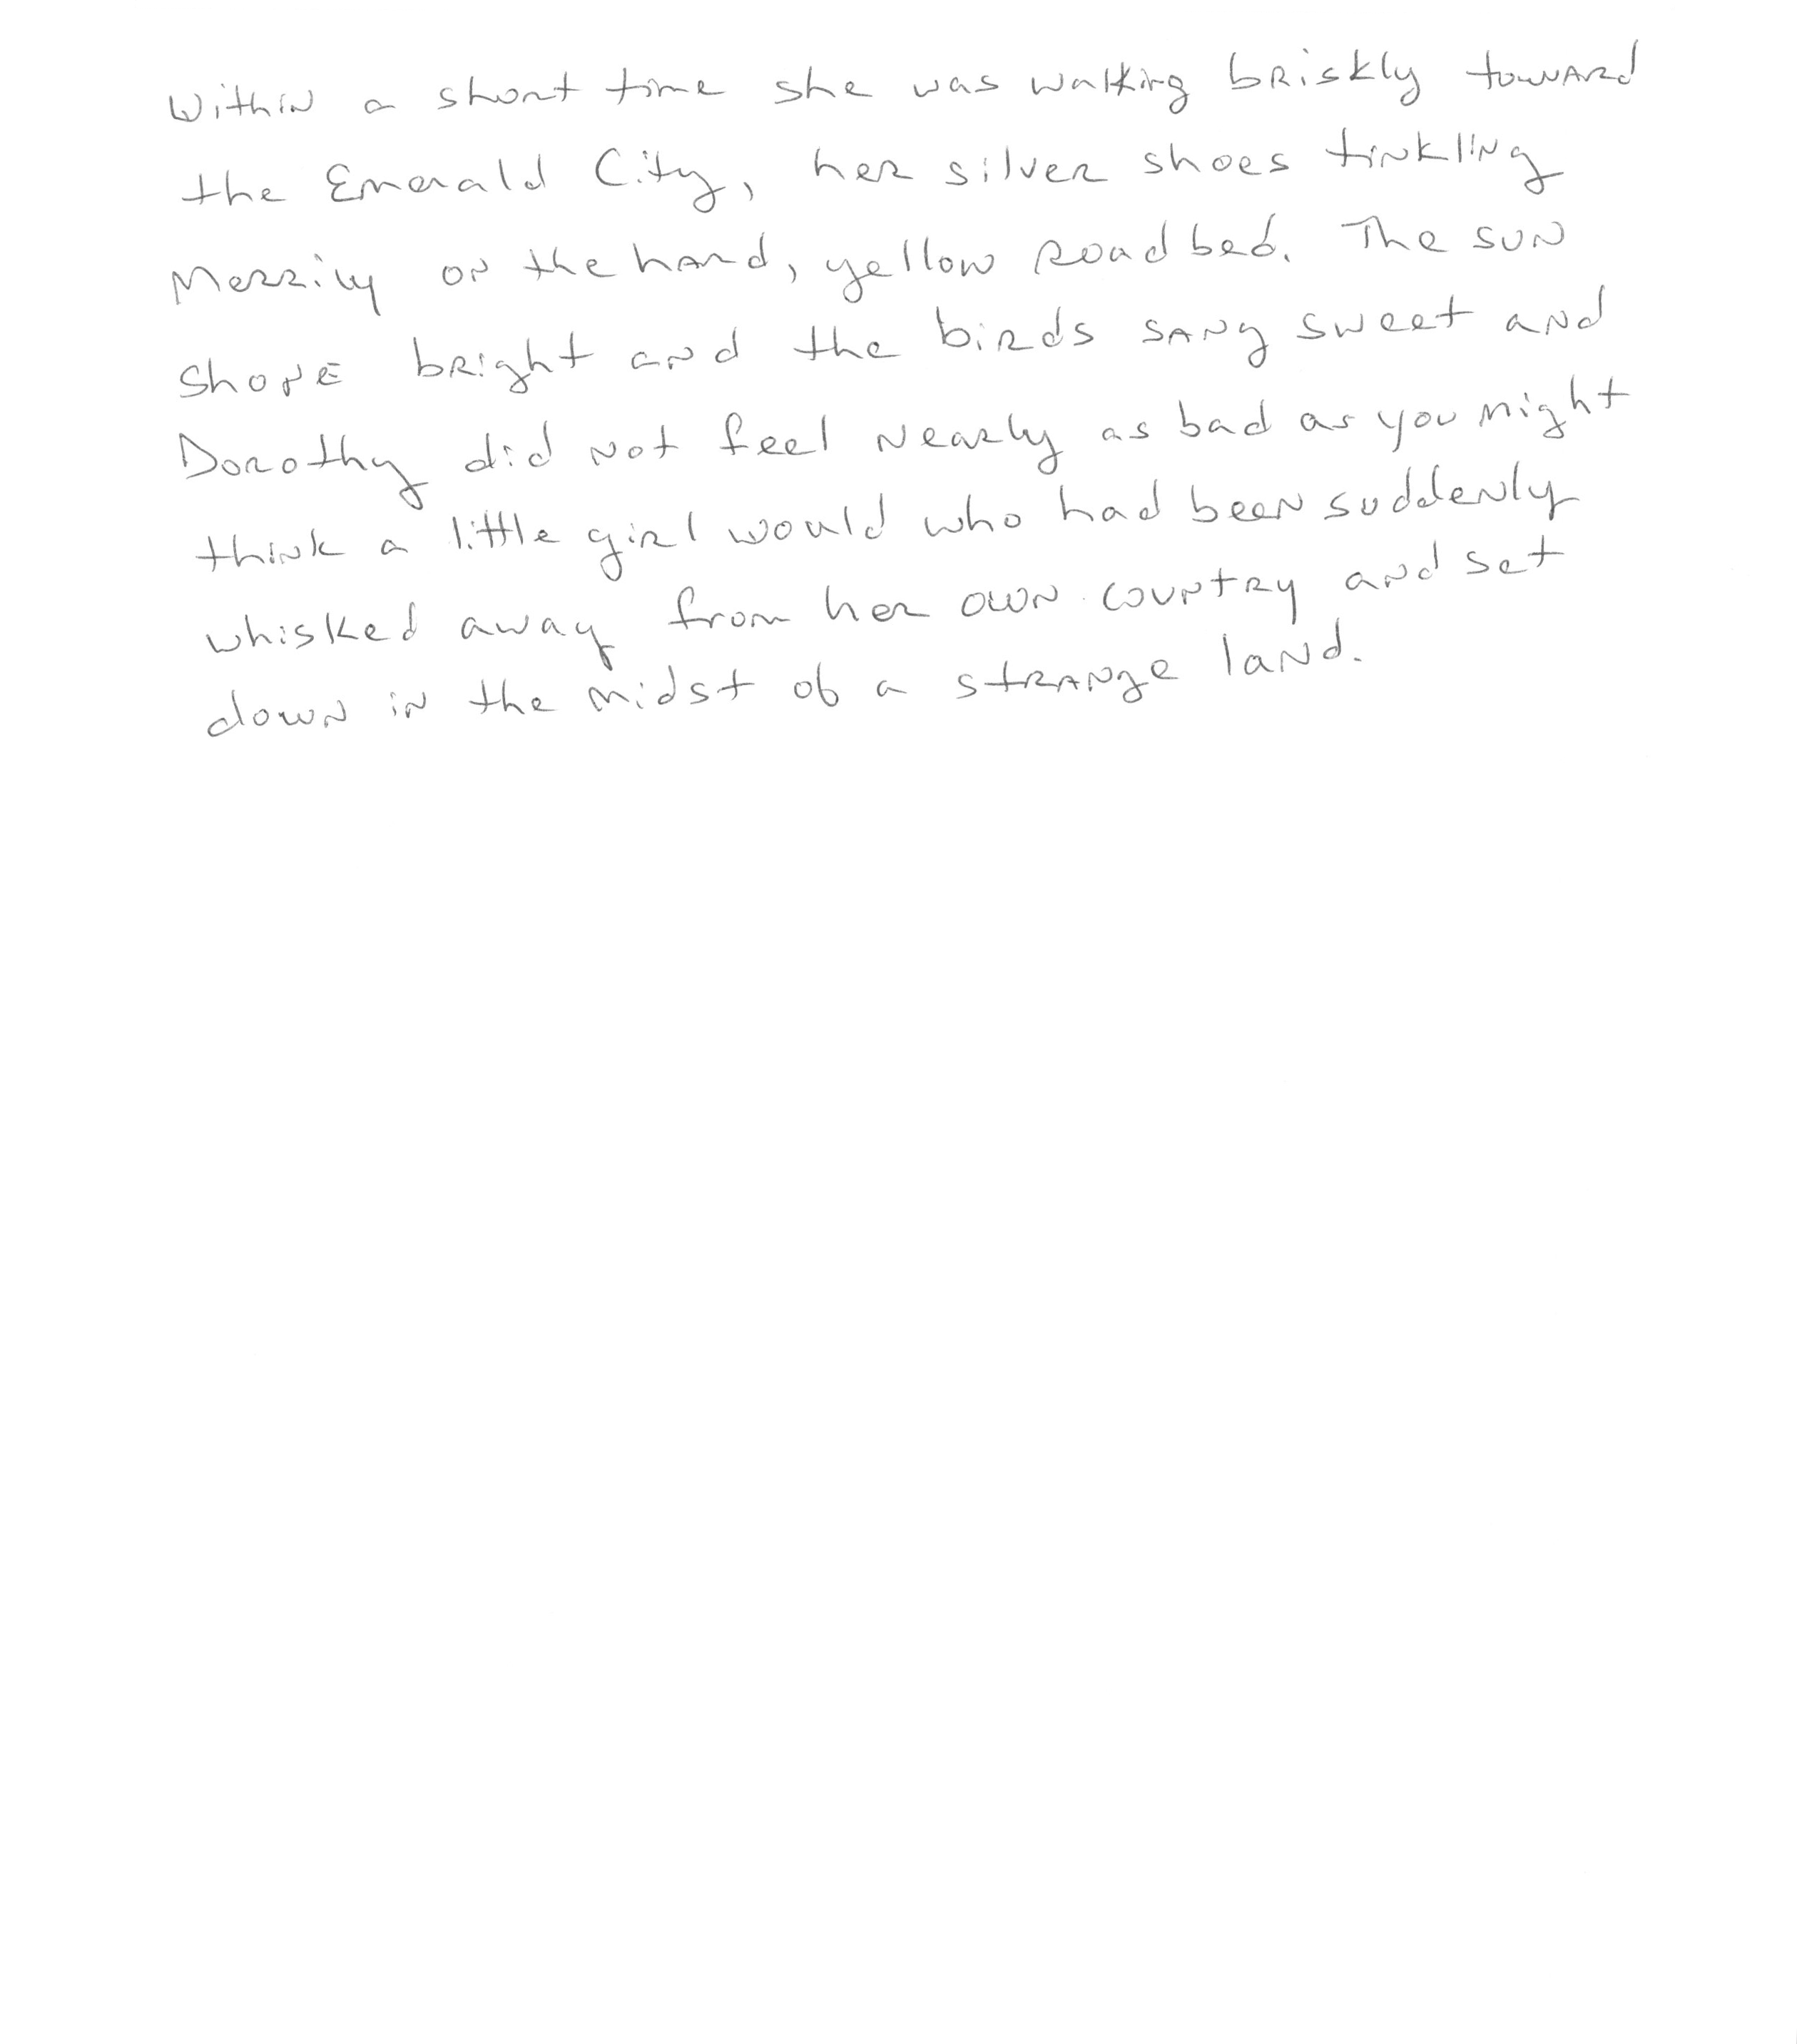 Within a short time she was walking briskly toward
the Emerald City, her silver shoes tinkling
Merrily on the hard, yellow road bed. The sun
shone bright and the birds sang sweet and
Dorothy did not feel nearly as bad as you might
think a little girl would who had been suddenly
whisked away from her own country and set
down in the midst of a strange land.